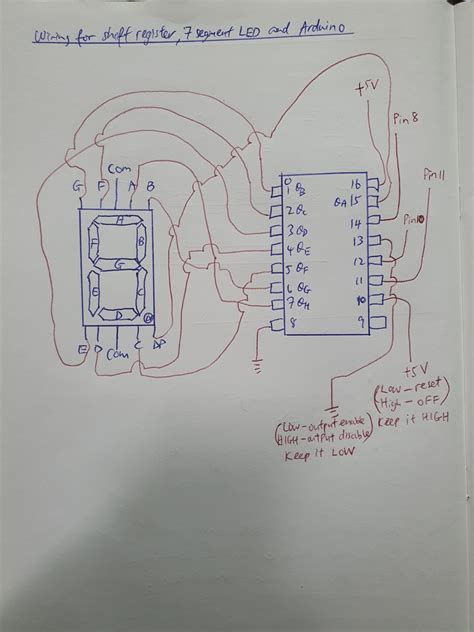 Wiring for shaft register, 7 segment LED and Arduino
+5V
Pin 8
Pin 11
Pin 10
Com
G F A B
A
F B
G
E C
D
DP
E D Com C DP
0
1 QB 16
2 QC QA 15
3 QD 14
4 QE 13
5 QF 12
6 QG 11
7 QH 10
8 9
+5V
(Low - reset
High - OFF)
Keep it HIGH
(Low - output enable
HIGH - output disable)
Keep it LOW